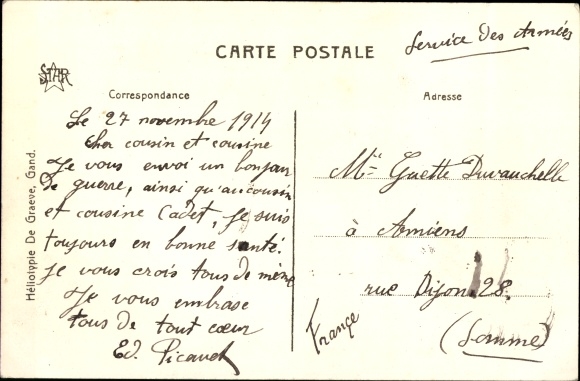 Service des Armées
CARTE POSTALE
STAR
Correspondance
Adresse
Le 27 novembre 1914
Cher cousin et cousine
Je vous envoi un bonjour
de guerre, ainsi qu'au cousin
et cousine Cadet, je suis
toujours en bonne santé.
je vous crois tous de même
Je vous embrase
tous de tout cœur
Ed. Picauet
Mr Guette Duvauchelle
à Amiens
rue Dijon 28.
(Somme)
France
Héliotypie De Graeve, Gand.